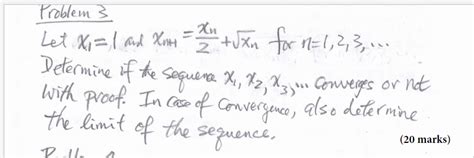 Problem 3
Let x₁=1 and xₙ₊₁ = xₙ/2 + √xₙ for n=1,2,3,...
Determine if the sequence x₁, x₂, x₃,... converges or not
with proof. In case of convergence, also determine
the limit of the sequence.
(20 marks)